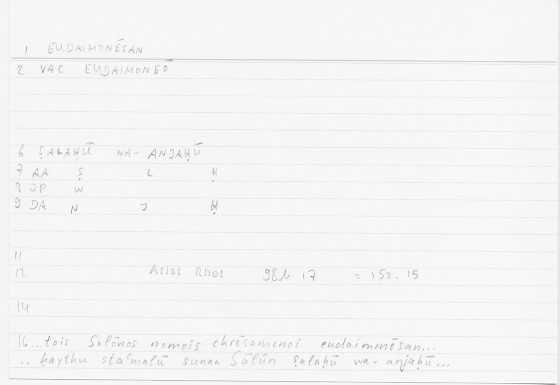 1 EUDAIMONĒSAN
2 VAC EUDAIMONEŌ
6 ṢALAḤŪ WA-ANJAḤŪ
7 AA Ṣ L Ḥ
8 JP W
9 DA N J Ḥ
11
12 Arist Rhet 98b 17 = 152.15
14
16 ...tois Solōnos nomois chrēsamenoi eudaimonēsan...
.. ḥaythu staʿmalū sunan Sūlūn ṣalaḥū wa-anjaḥū...